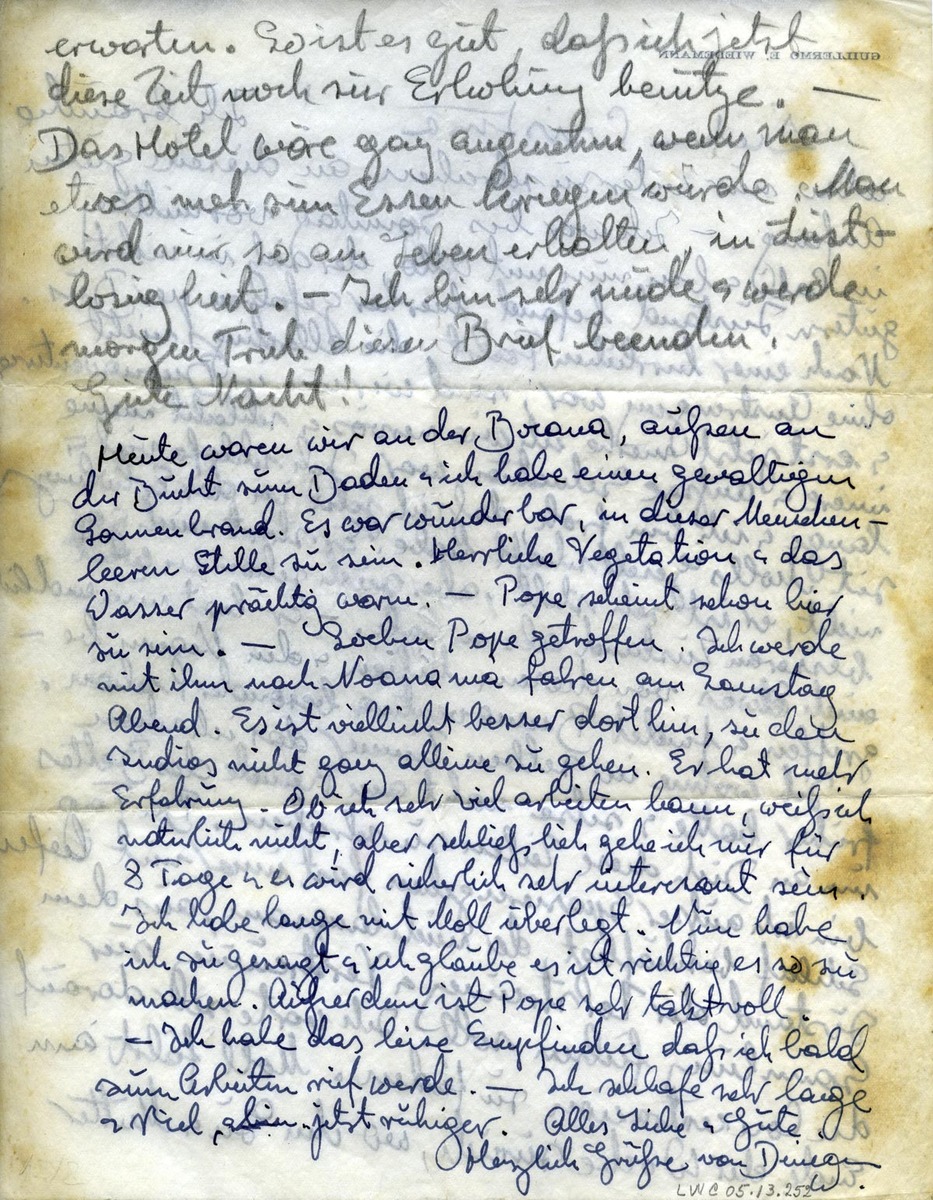 erwarten. So ist es gut, daß ich jetzt
GUILLERMO E. WIEDEMANN
diese Zeit noch zur Erholung benütze. —
Das Hotel wäre ganz angenehm, wenn man
etwas mehr zum Essen kriegen würde. Man
wird nur so am Leben erhalten, in Lust-
losigkeit. – Ich bin sehr müde & werde
morgen Früh diesen Brief beenden.
Gute Nacht!
Heute waren wir an der Bocana, außen an
der Bucht zum Baden & ich habe einen gewaltigen
Sonnenbrand. Es war wunderbar, in dieser Menschen-
leeren Stille zu sein. Herrliche Vegetation & das
Wasser prächtig warm. — Pope scheint schon hier
zu sein. — Soeben Pope getroffen. Ich werde
mit ihm nach Noanama fahren am Samstag
Abend. Es ist vielleicht besser dorthin, zu den
Indios nicht ganz alleine zu gehen. Er hat mehr
Erfahrung. Ob ich sehr viel arbeiten kann, weiß ich
natürlich nicht, aber schließlich gehe ich nur für
8 Tage & es wird sicherlich sehr interessant sein.
Ich habe lange mit Moll überlegt. Nun habe
ich zugesagt & ich glaube es ist richtig es so zu
machen. Außerdem ist Pope sehr taktvoll.
– Ich habe das leise Empfinden daß ich bald
zum Arbeiten reif werde. — Ich schlafe sehr lange
& viel, & bin jetzt ruhiger. Alles Liebe & Gute.
Herzlich Grüße von Deinem
LWC 05.13.252